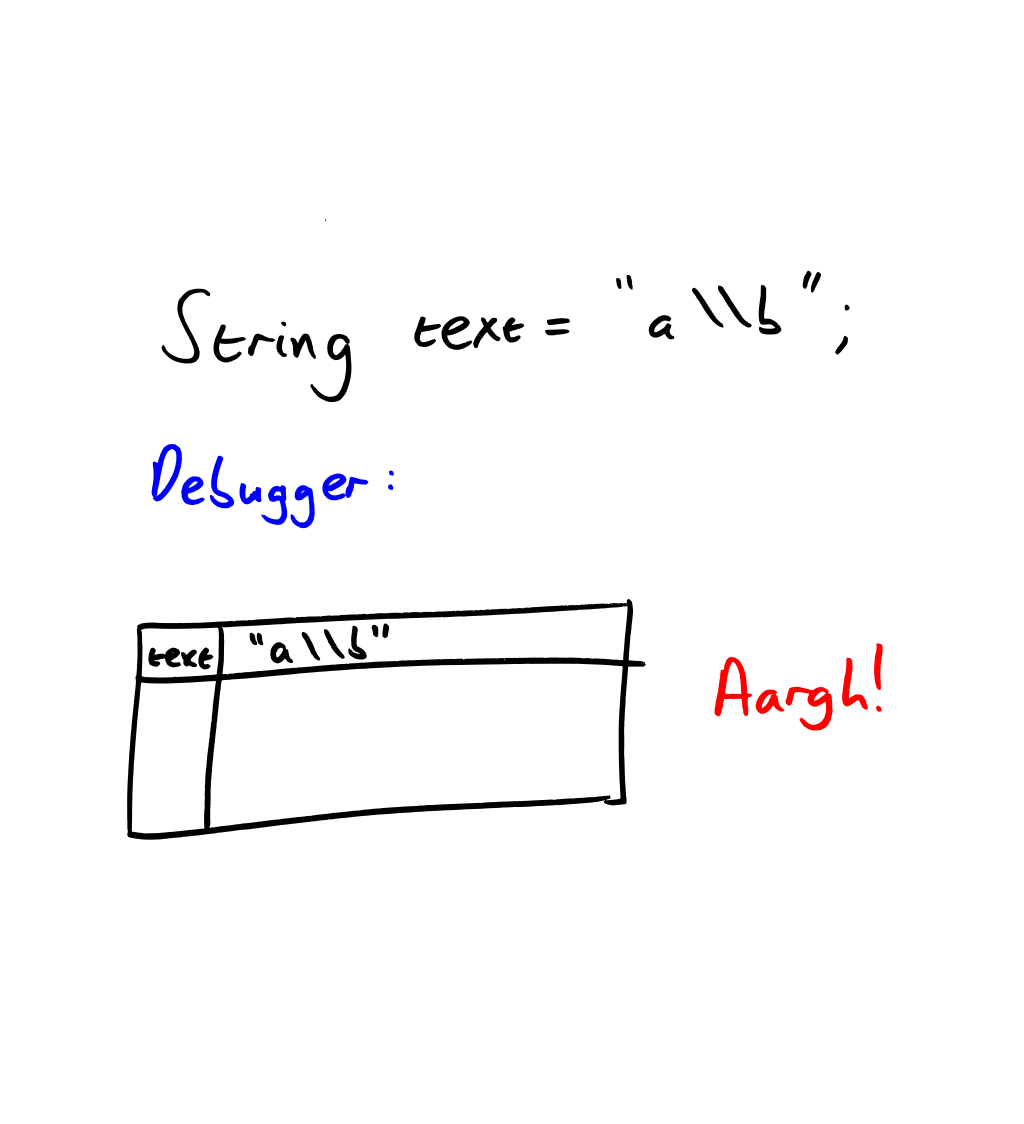 String text = "a\\b";
Debugger:
text "a\\b"
Aargh!